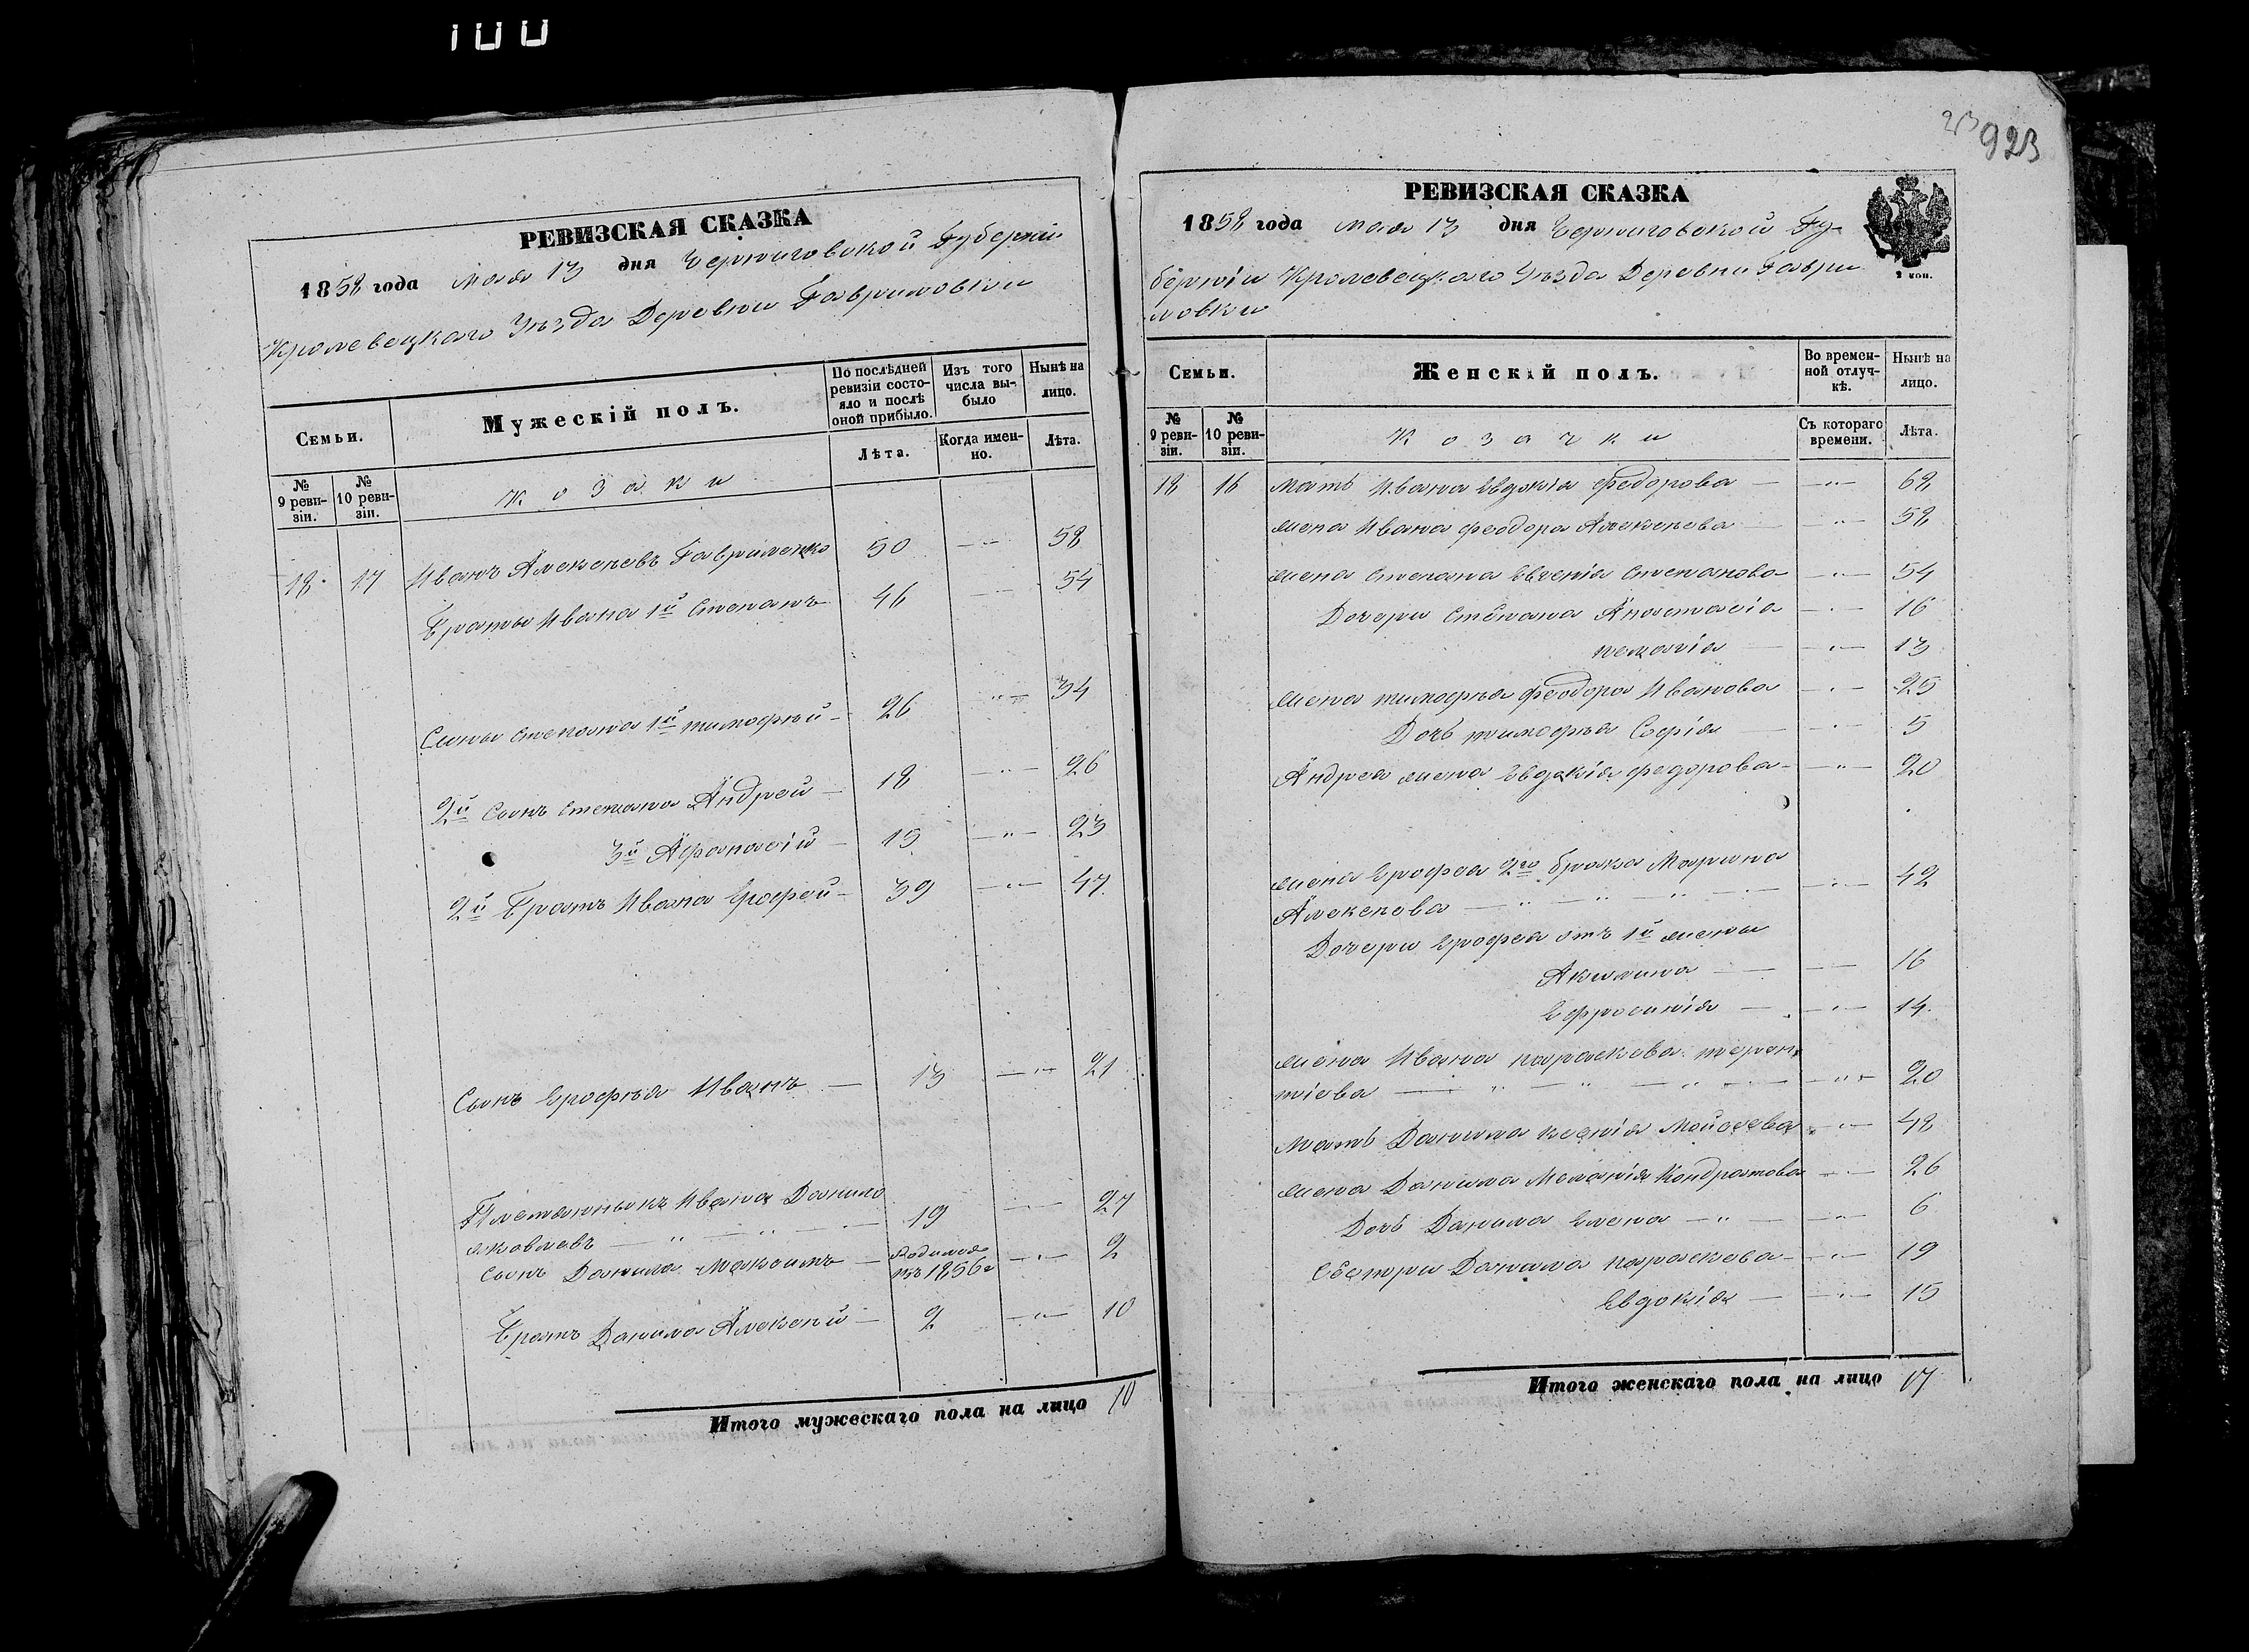 100
РЕВИЗСКАЯ СКАЗКА
1858 года мая 13 дня Черниговской Губерніи
Кролевецкаго Уѣзда Деревни Гавриловки
Семьи.
Мужескій полъ.
По послѣдней ревизіи состояло и послѣ оной прибыло.
Изъ того числа выбыло
Нынѣ на лицо.
№ 9 ревизіи.
№ 10 ревизіи.
Козаки
Лѣта.
Когда именно.
Лѣта.
18 17 Иванъ Алексѣевъ Гавриленко 50 — 58
Братья Ивана 1й Степанъ 46 — 54
Сыны Степана 1й тимофѣй — 26 — " — 34
2й Сынъ Степана Андрей — 18 — " — 26
3й Афанасій — 15 — " — 23
2й Братъ Ивана Ерофей — 39 — " — 47
Сынъ Ерофѣя Иванъ — 13 — " — 21
Племянникъ Ивана Данило
яковлевъ — " — " — 19 — 27
Сынъ Данила Максимъ — родился въ 1856 — " — 2
Братъ Данила Алексѣй — 2 — " — 10
Итого мужескаго пола на лицо 10
923
РЕВИЗСКАЯ СКАЗКА
1858 года мая 13 дня Черниговской Гу-
берніи Кролевецкаго Уѣзда Деревни Гаври
ловки
2 коп.
Семьи.
Женскій полъ.
Во временной отлучкѣ.
Нынѣ на лицо.
№ 9 ревизіи.
№ 10 ревизіи.
Козачки
Съ котораго времени.
Лѣта.
18 16 мать Ивана Евдокія Федорова — " — 68
жена Ивана феодора Алексѣева — " — 58
жена Степана Евгенія Степанова — " — 54
Дочери Степана Анастасія — " — 16
пелагія — " — 13
жена тимофѣя феодора Иванова — " — 25
Дочь тимофѣя Софія — " — 5
Андрея жена Евдокія федорова — " — 20
жена Ерофея 2го брака Марина
Алексѣева — " — " — " — 42
Дочери Ерофея отъ 1й жены
Акилина — 16
Ефросинія — " — 14
жена Ивана параскева терен-
тіева — " — " — " — 20
мать Данила ксенія Мойсеева — " — 48
жена Данила Меланія Кондратова — " — 26
Дочь Данила Елена — " — 6
Сестры Данила параскева — " — 19
Евдокія — " — 15
Итого женскаго пола на лицо 17